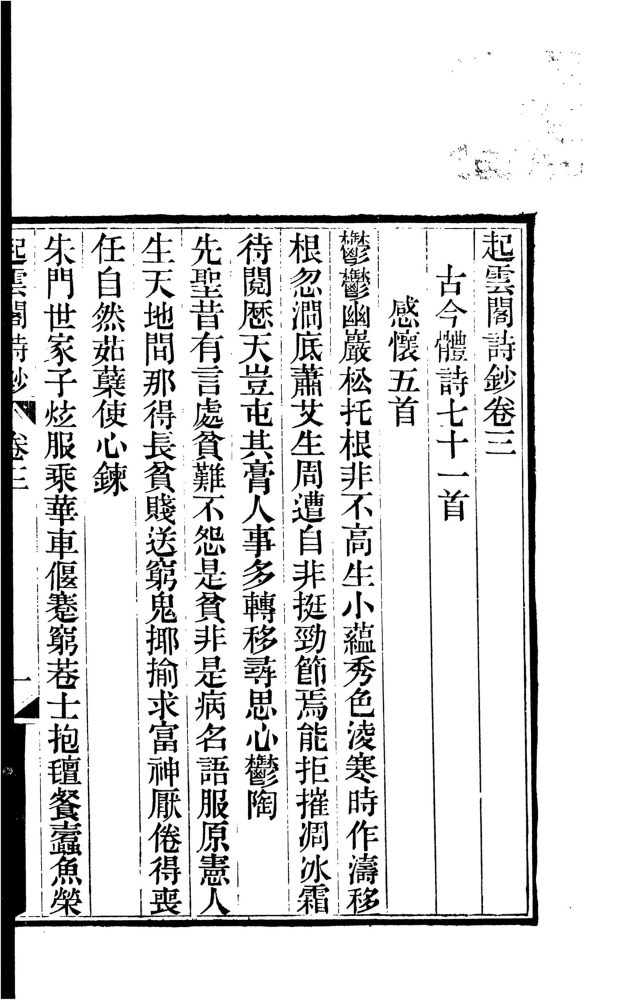 起雲閣詩鈔卷三
古今體詩七十一首
感懷五首
鬱鬱幽巖松托根非不高生小蘊秀色淩寒時作濤移
根忽澗底蕭艾生周遭自非挺勁節焉能拒摧凋冰霜
待閱歷天豈屯其膏人事多轉移尋思心鬱陶
先聖昔有言處貧難不怨是貧非是病名語服原憲人
生天地間那得長貧賤送窮鬼揶揄求富神厭倦得喪
任自然茹蘗使心鍊
朱門世家子炫服乘華車偃蹇窮巷士抱氊餐蠹魚榮
起雲閣詩鈔 卷三 一